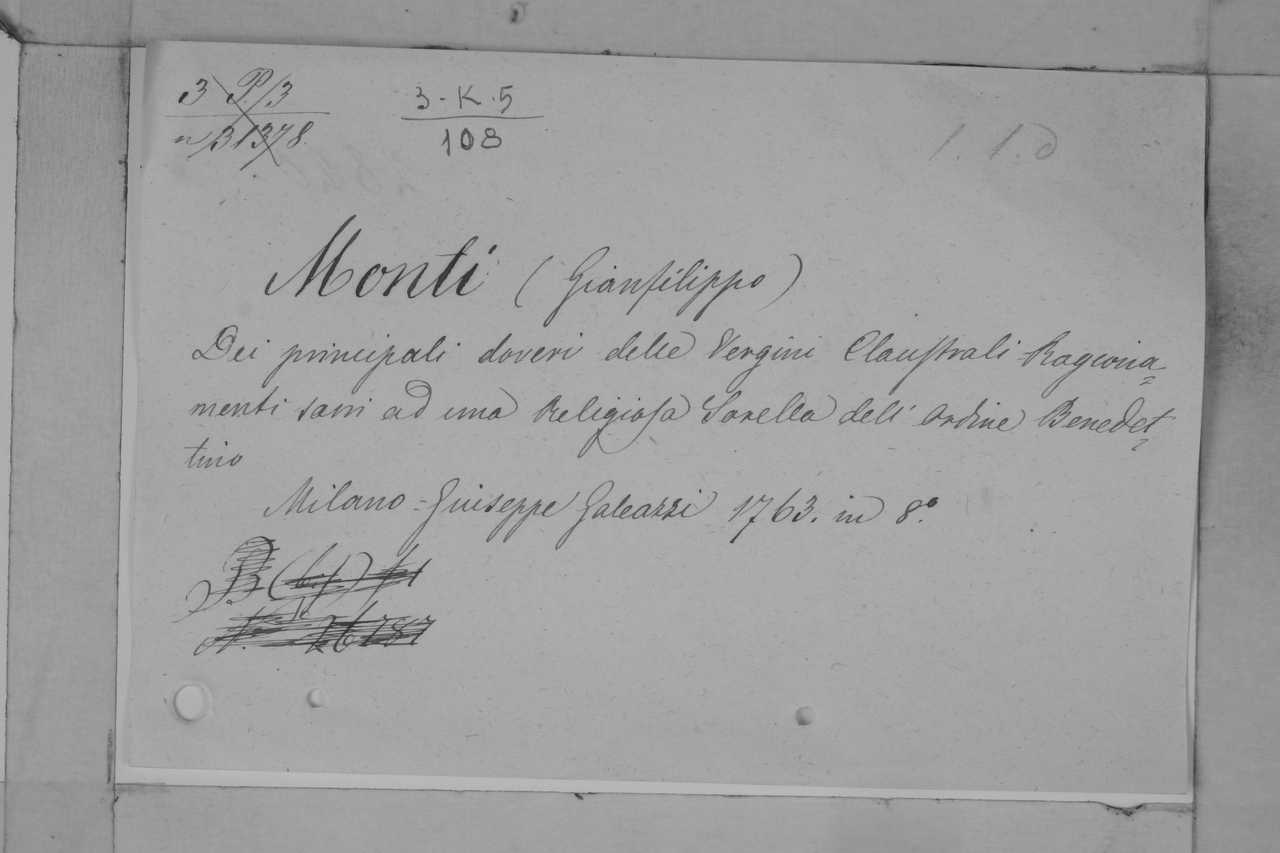 3 P./3
n/31378.
3-K.5
108
1. 1. d
Monti (Gianfilippo)
Dei principali doveri delle Vergini Claustrali Ragiona=
menti sarii ad una Religiosa Sorella dell' Ordine Benedet=
tino
Milano = Guiseppe Galeazzi 1763. in 8.o
B
N. 26787